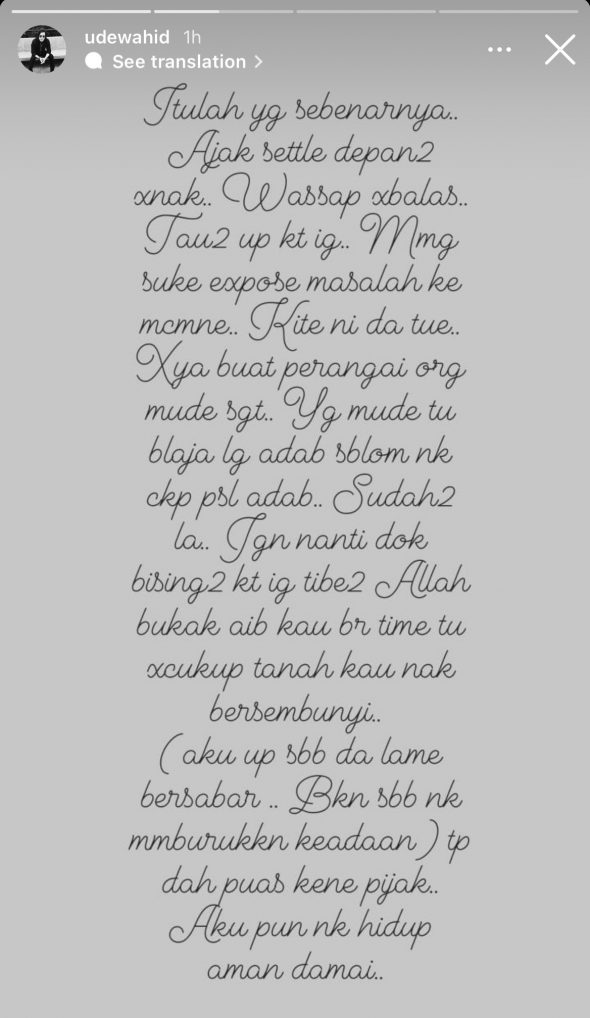 udewahid 1h
See translation
Itulah yg sebenarnya..
Ajak settle depan2
xnak.. Wassap xbalas..
Tau2 up kt ig.. Mmg
suke expose masalah ke
mcmne.. Kite ni da tue..
Xya buat perangai org
mude sgt.. Yg mude tu
blaja lg adab sblom nk
ckp psl adab.. Sudah2
la.. Jgn nanti dok
bising2 kt ig tibe2 Allah
bukak aib kau br time tu
xcukup tanah kau nak
bersembunyi..
( aku up sbb da lame
bersabar .. Bkn sbb nk
mmburukkn keadaan ) tp
dah puas kene pijak..
Aku pun nk hidup
aman damai..